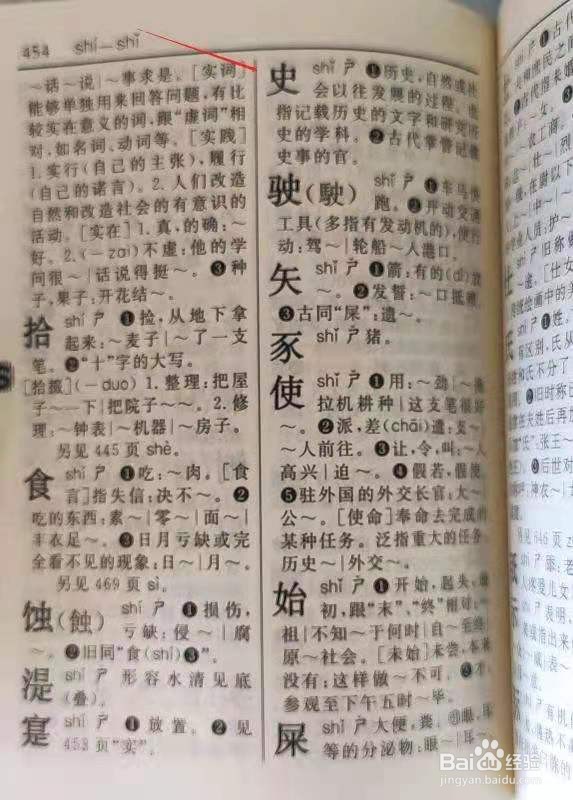 454 shí—shǐ
～话～说～事求是。[实词]
能够单独用来回答问题，有比
较实在意义的词，跟"虚词"相
对，如名词、动词等。[实践]
1. 实行(自己的主张)，履行
(自己的诺言)。2. 人们改造
自然和改造社会的有意识的
活动。[实在] 1. 真，的确：～
好。2. (—zai)不虚：他的学
问很～|话说得挺～。❸种
子，果子：开花结～。
拾 shí ㄕˊ ❶捡，从地下拿
起来：～麦子|～了一支
笔。❷"十"字的大写。
[拾掇](—duo) 1. 整理：把屋
子～一下|把院子～～。2. 修
理：～钟表|～机器|～房子。
另见 445 页 shè。
食 shí ㄕˊ ❶吃：～肉。[食
言]指失信：决不～。❷
吃的东西：素～|零～|面～|
丰衣足～。❸日月亏缺或完
全看不见的现象：日～|月～。
另见 469 页 sì。
蚀(蝕) shí ㄕˊ ❶损伤，
亏缺：侵～|腐
～。❷旧同"食(shí)❸"。
湜 shí ㄕˊ 形容水清见底
(叠)。
寔 shí ㄕˊ ❶放置。❷见
453 页"实"。
史 shǐ ㄕˇ ❶历史，自然或社
会以往发展的过程。也
指记载历史的文字和研究历
史的学科。❷古代掌管记载
史事的官。
驶(駛) shǐ ㄕˇ ❶车马快
跑。❷开动交通
工具(多指有发动机的)，使行
动：驾～|轮船～入港口。
矢 shǐ ㄕˇ ❶箭：有的(dì)放
～。❷发誓：～口抵赖。
❸古同"屎"：遗～。
豕 shǐ ㄕˇ 猪。
使 shǐ ㄕˇ ❶用：～劲|～拖
拉机耕种|这支笔很好
～。❷派，差(chāi)遣：支～|
～人前往。❸让，令，叫：～人
高兴|迫～。❹假若，假使。
❺驻外国的外交长官：大～|
公～。[使命]奉命去完成的
某种任务。泛指重大的任务：
历史～|外交～。
始 shǐ ㄕˇ ❶开始，起头，最
初，跟"末"、"终"相对：～
祖|不知～于何时|自～至终|
原～社会。[未始]未尝，本来
没有：这样做～不可。❷才：
参观至下午五时～毕。
屎 shǐ ㄕˇ 大便，粪。㊗眼、耳
等的分泌物：眼～|耳～。
Baidu经验
jingyan.baidu.com